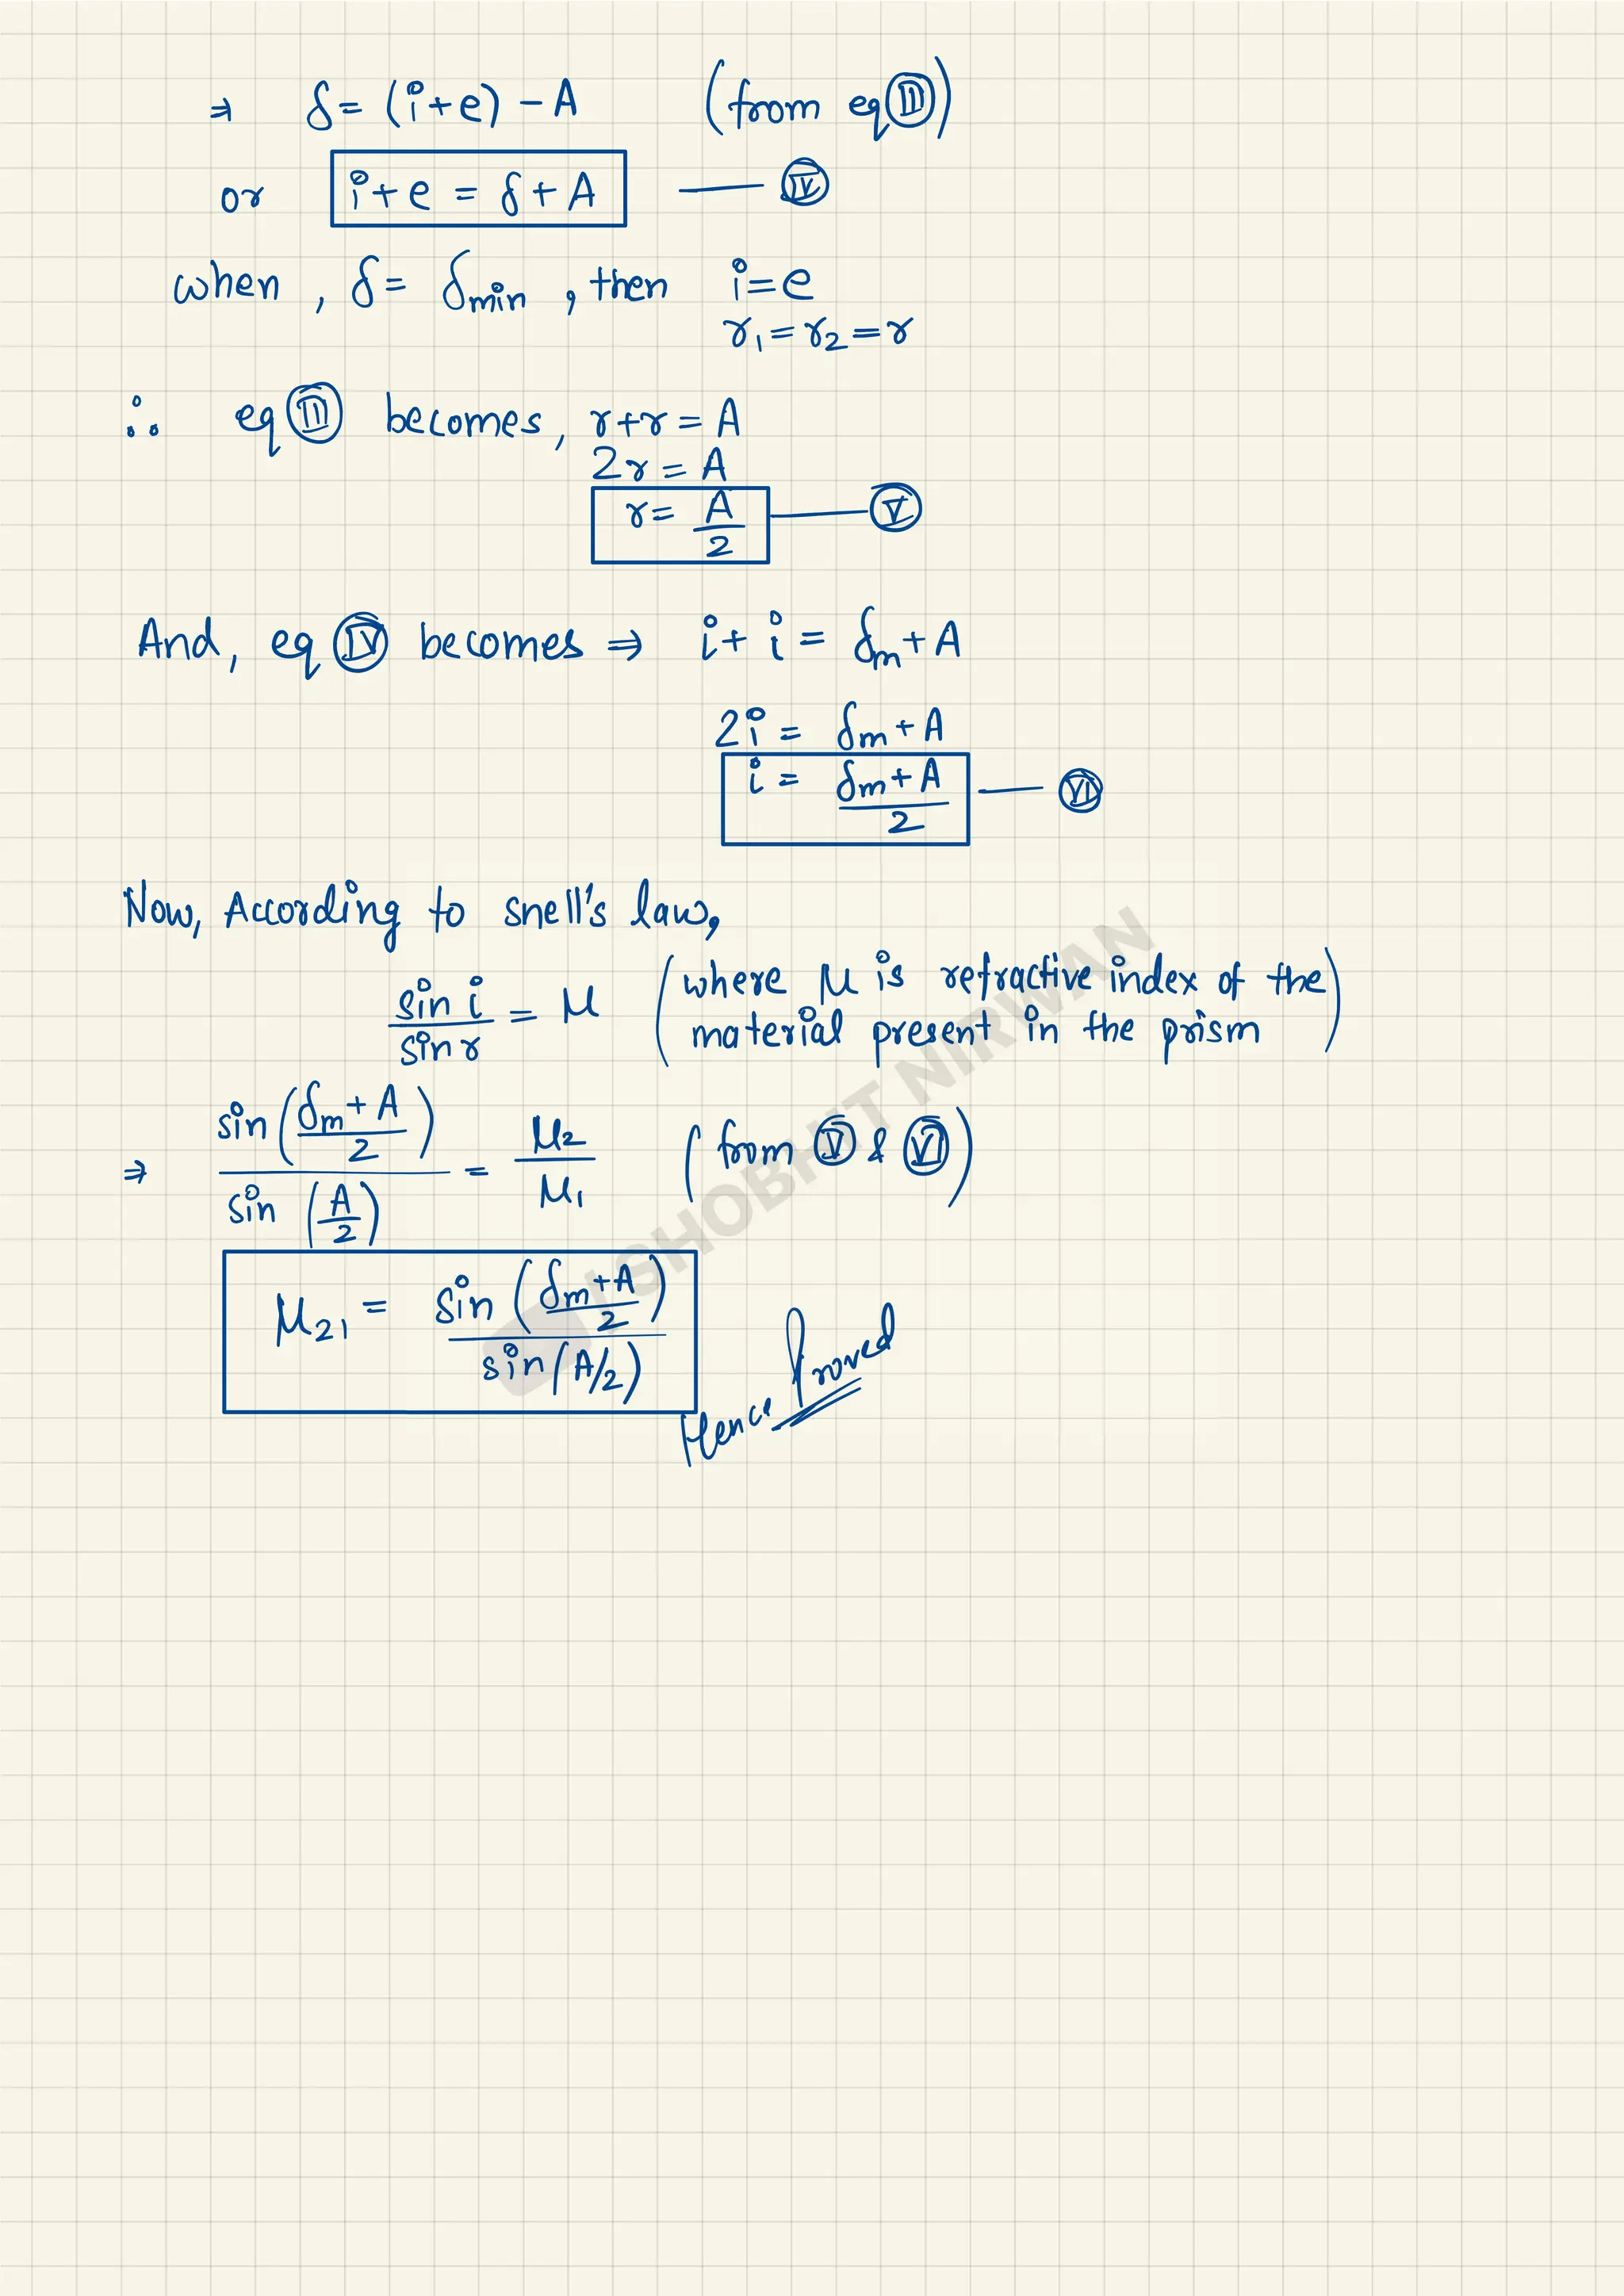 ⇒ δ = (i+e) - A (from eq (III))
or i+e = δ + A — (IV)
when, δ = δmin, then i=e
r₁ = r₂ = r
∴ eq (III) becomes, r+r = A
2r = A
r = A/2 — (V)
And, eq (IV) becomes ⇒ i + i = δm + A
2i = δm + A
i = (δm + A)/2 — (VI)
Now, According to snell's law,
sin i / sin r = μ (where μ is refractive index of the
material present in the prism)
⇒ sin((δm + A)/2) / sin(A/2) = μ₂/μ₁ (from (V) & (VI))
μ₂₁ = sin((δm + A)/2) / sin(A/2)
Hence Proved
SHOBHIT NIRWAN